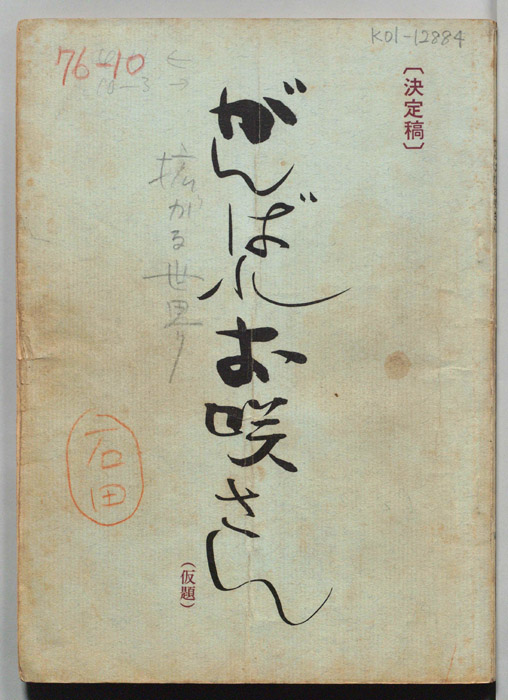 K01-12884
76-10
〔決定稿〕
がんばれお咲さん
(仮題)
拡がる世界
石田